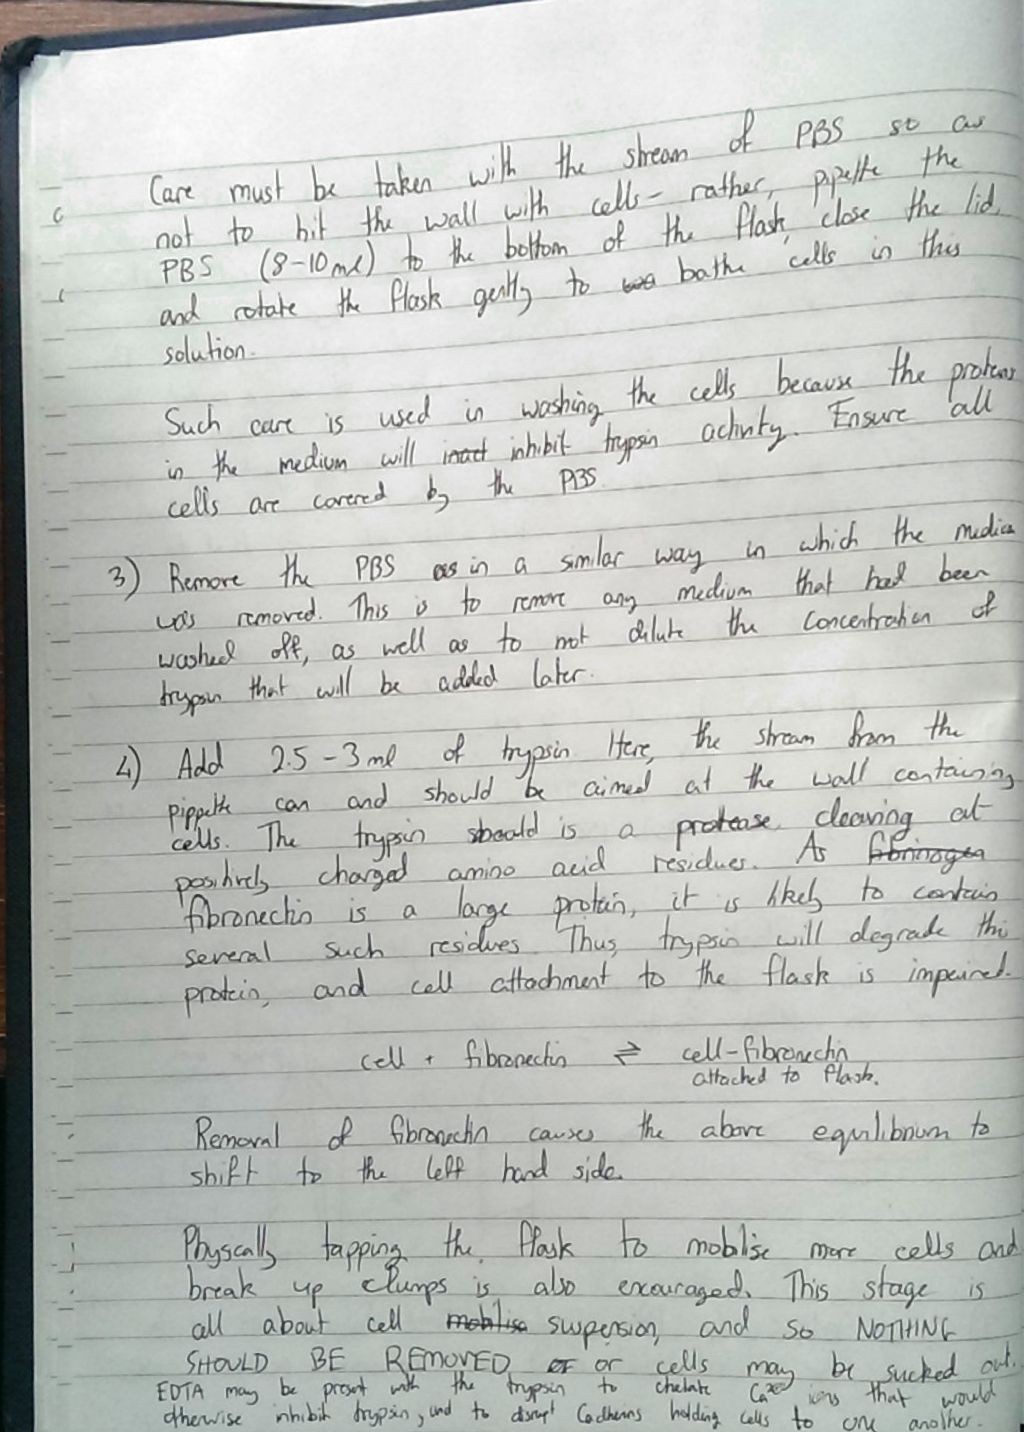 Care must be taken with the stream of PBS so as
not to hit the wall with cells - rather, pipette the
PBS (8-10ml) to the bottom of the flask, close the lid,
and rotate the flask gently to bathe cells in this
solution.
Such care is used in washing the cells because the proteins
in the medium will inact inhibit trypsin activity. Ensure all
cells are covered by the PBS.
3) Remove the PBS as in a similar way in which the media
was removed. This is to remove any medium that had been
washed off, as well as to not dilute the concentration of
trypsin that will be added later.
4) Add 2.5 - 3 ml of trypsin Here, the stream from the
pippette can and should be aimed at the wall containing
cells. The trypsin should is a protease cleaving at
positively charged amino acid residues. As fibrinogen
fibronectin is a large protein, it is likely to contain
several such residues. Thus, trypsin will degrade this
protein, and cell attachment to the flask is impaired.
cell + fibronectin ⇌ cell-fibronectin
attached to flask.
Removal of fibronectin causes the above equilibrium to
shift to the left hand side.
Physically tapping the flask to mobilise more cells and
break up clumps is also encouraged. This stage is
all about cell mobilise suspension, and so NOTHING
SHOULD BE REMOVED or or cells may be sucked out.
EDTA may be present with the trypsin to chelate Ca²⁺ ions that would
otherwise inhibit trypsin, and to disrupt Cadherins holding cells to one another.